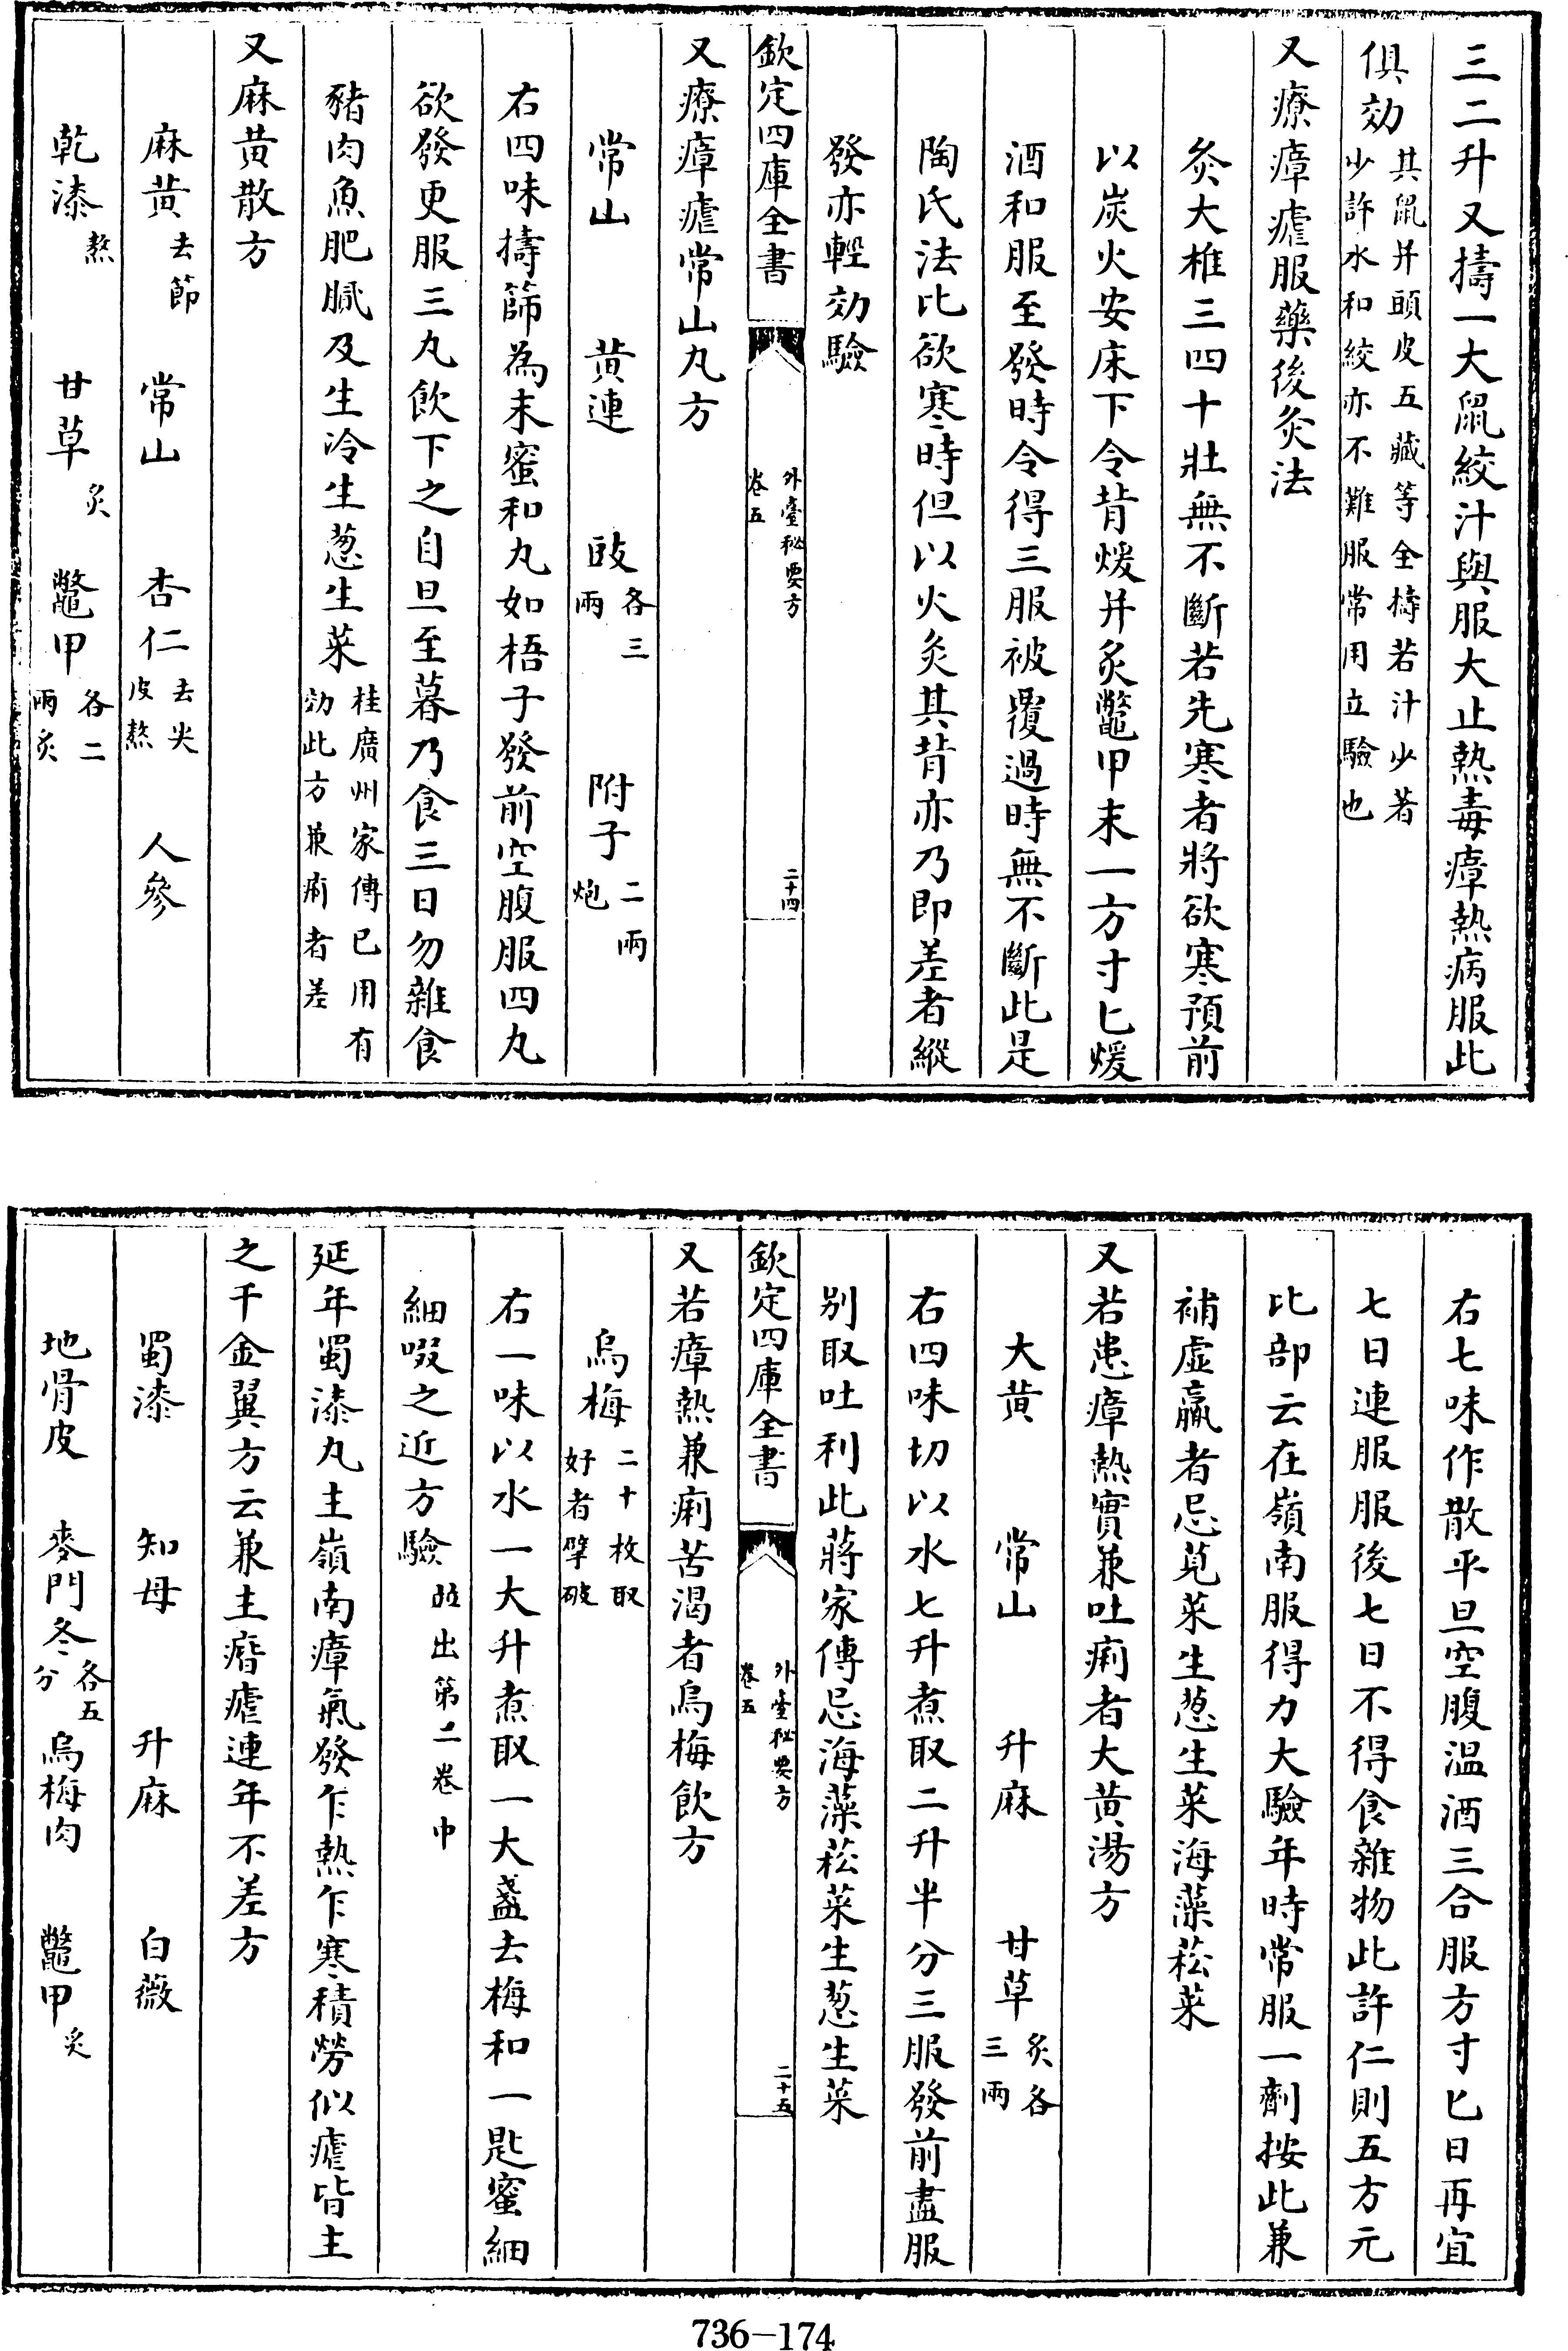 三二升又擣一大䑕絞汁與服大止熱毒瘴熱病服此
俱効其䑕并頭皮五藏等全擣若汁少著少許水和絞亦不難服常用立驗也
又療瘴瘧服藥後灸法
灸大椎三四十壯無不斷若先寒者將欲寒預前
以炭火安床下令背煖并炙鼈甲末一方寸匕煖
酒和服至發時令得三服被覆過時無不斷此是
陶氏法比欲寒時但以火灸其背亦乃即差者縱
發亦輕効驗
欽定四庫全書
外臺秘要方
卷五
二十四
又療瘴瘧常山丸方
常山 黄連 豉各三兩 附子二兩炮
右四味擣篩為末蜜和丸如梧子發前空腹服四丸
欲發更服三丸飲下之自旦至暮乃食三日勿雜食
豬肉魚肥膩及生冷生葱生菜桂廣州家傳已用有効此方兼痢者差
又麻黄散方
麻黄去節 常山 杏仁去尖皮熬 人參
乾漆熬 甘草炙 鼈甲各二兩炙
右七味作散平旦空腹温酒三合服方寸匕日再宜
七日連服服後七日不得食雜物此許仁則五方元
比部云在嶺南服得力大驗年時常服一劑按此兼
補虛羸者忌莧菜生葱生菜海藻菘菜
又若患瘴熱實兼吐痢者大黄湯方
大黄 常山 升麻 甘草炙各三兩
右四味切以水七升煮取二升半分三服發前盡服
别取吐利此蔣家傳忌海藻菘菜生葱生菜
欽定四庫全書
外臺秘要方
卷五
二十五
又若瘴熱兼痢苦渴者烏梅飲方
烏梅二十枚取好者擘破
右一味以水一大升煮取一大盞去梅和一匙蜜細
細啜之近方驗竝出第二卷中
延年蜀漆丸主嶺南瘴氣發乍熱乍寒積勞似瘧皆主
之千金翼方云兼主㾬瘧連年不差方
蜀漆 知母 升麻 白薇
地骨皮 麥門冬各五分 烏梅肉 鼈甲炙
736-174